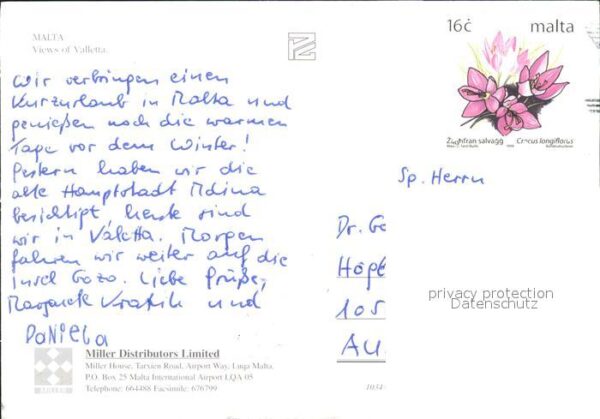 MALTA
Views of Valletta.
16ċ malta
Żagħfran salvaġġ Crocus longiflorus
Wir verbringen einen
Kurzurlaub in Malta und
genießen noch die warmen
Tage vor dem Winter!
Gestern haben wir die
alte Hauptstadt Mdina
besichtigt, heute sind
wir in Valetta. Morgen
fahren wir weiter auf die
Insel Gozo. Liebe Grüße,
und
DaNiela
Sp. Herrn
Dr. Ge
Höpf
105
AU
privacy protection
Datenschutz
Miller Distributors Limited
Miller House, Tarxien Road, Airport Way, Luqa Malta.
P.O. Box 25 Malta International Airport LQA 05
Telephone: 664488 Facsimile: 676799
1034